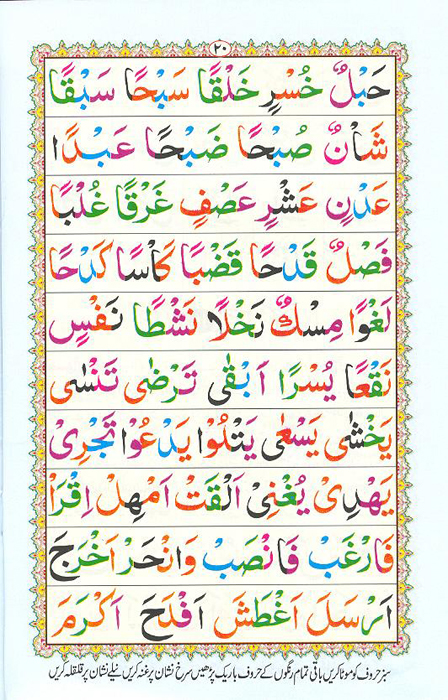 ۲۰
حَبْلٌ خُسْرٍ خَلْقًا سَبْحًا سَبْقًا
شَأْنٌ صُبْحًا ضَبْحًا عَبْدًا
عَدْنٍ عَشْرٍ عَصْفٍ غَرْقًا غُلْبًا
فَصْلٌ قَدْحًا قَضْبًا كَأْسًا كَدْحًا
لَغْوًا مِسْكٌ نَخْلًا نَشْطًا نَفْسٍ
نَقْعًا يُسْرًا اَبْقٰى تَرْضٰى تَنْسٰى
يَخْشٰى يَسْعٰى يَتْلُوْا يَدْعُوْا تَجْرِىْ
يَهْدِىْ يُغْنِىْ اَلْقَتْ اَمْهِلْ اِقْرَاْ
فَارْغَبْ فَانْصَبْ وَانْحَرْ اَخْرَجَ
اَرْسَلَ اَغْطَشَ اَفْلَحَ اَكْرَمَ
سبز حروف کو موٹا کریں باقی تمام رنگوں کے حروف باریک پڑھیں سرخ نشان پر غنہ کریں نیلے نشان پر قلقلہ کریں